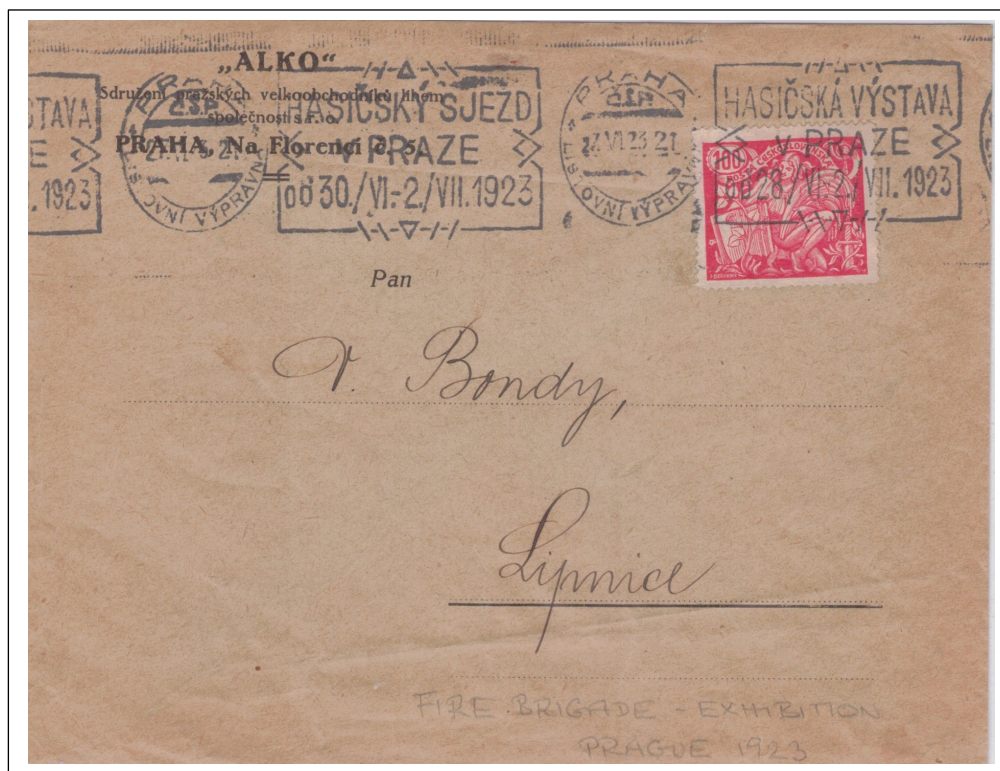 „ALKO“
Sdružení pražských velkoobchodníků lihem
společnost s r. o.
PRAHA, Na Florenci č. 5.
STAVA
E
. 1923
PRAHA
Č.S.P.
VÝPRAVN
HASIČSKÝ SJEZD
v PRAZE
od 30./VI.-2./VII. 1923
PRAHA
Č.S.P.
VI 23 21
LISTOVNÍ VÝPRAVN
HASIČSKÁ VÝSTAVA
v PRAZE
od 28./VI.-2./VII. 1923
100
ČESKOSLOVENSKÁ
Pan
V. Bondy,
Lipnice
FIRE BRIGADE - EXHIBITION
PRAGUE 1923